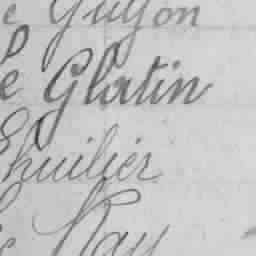 e Guyon
e Glatin
huilier
e Kay